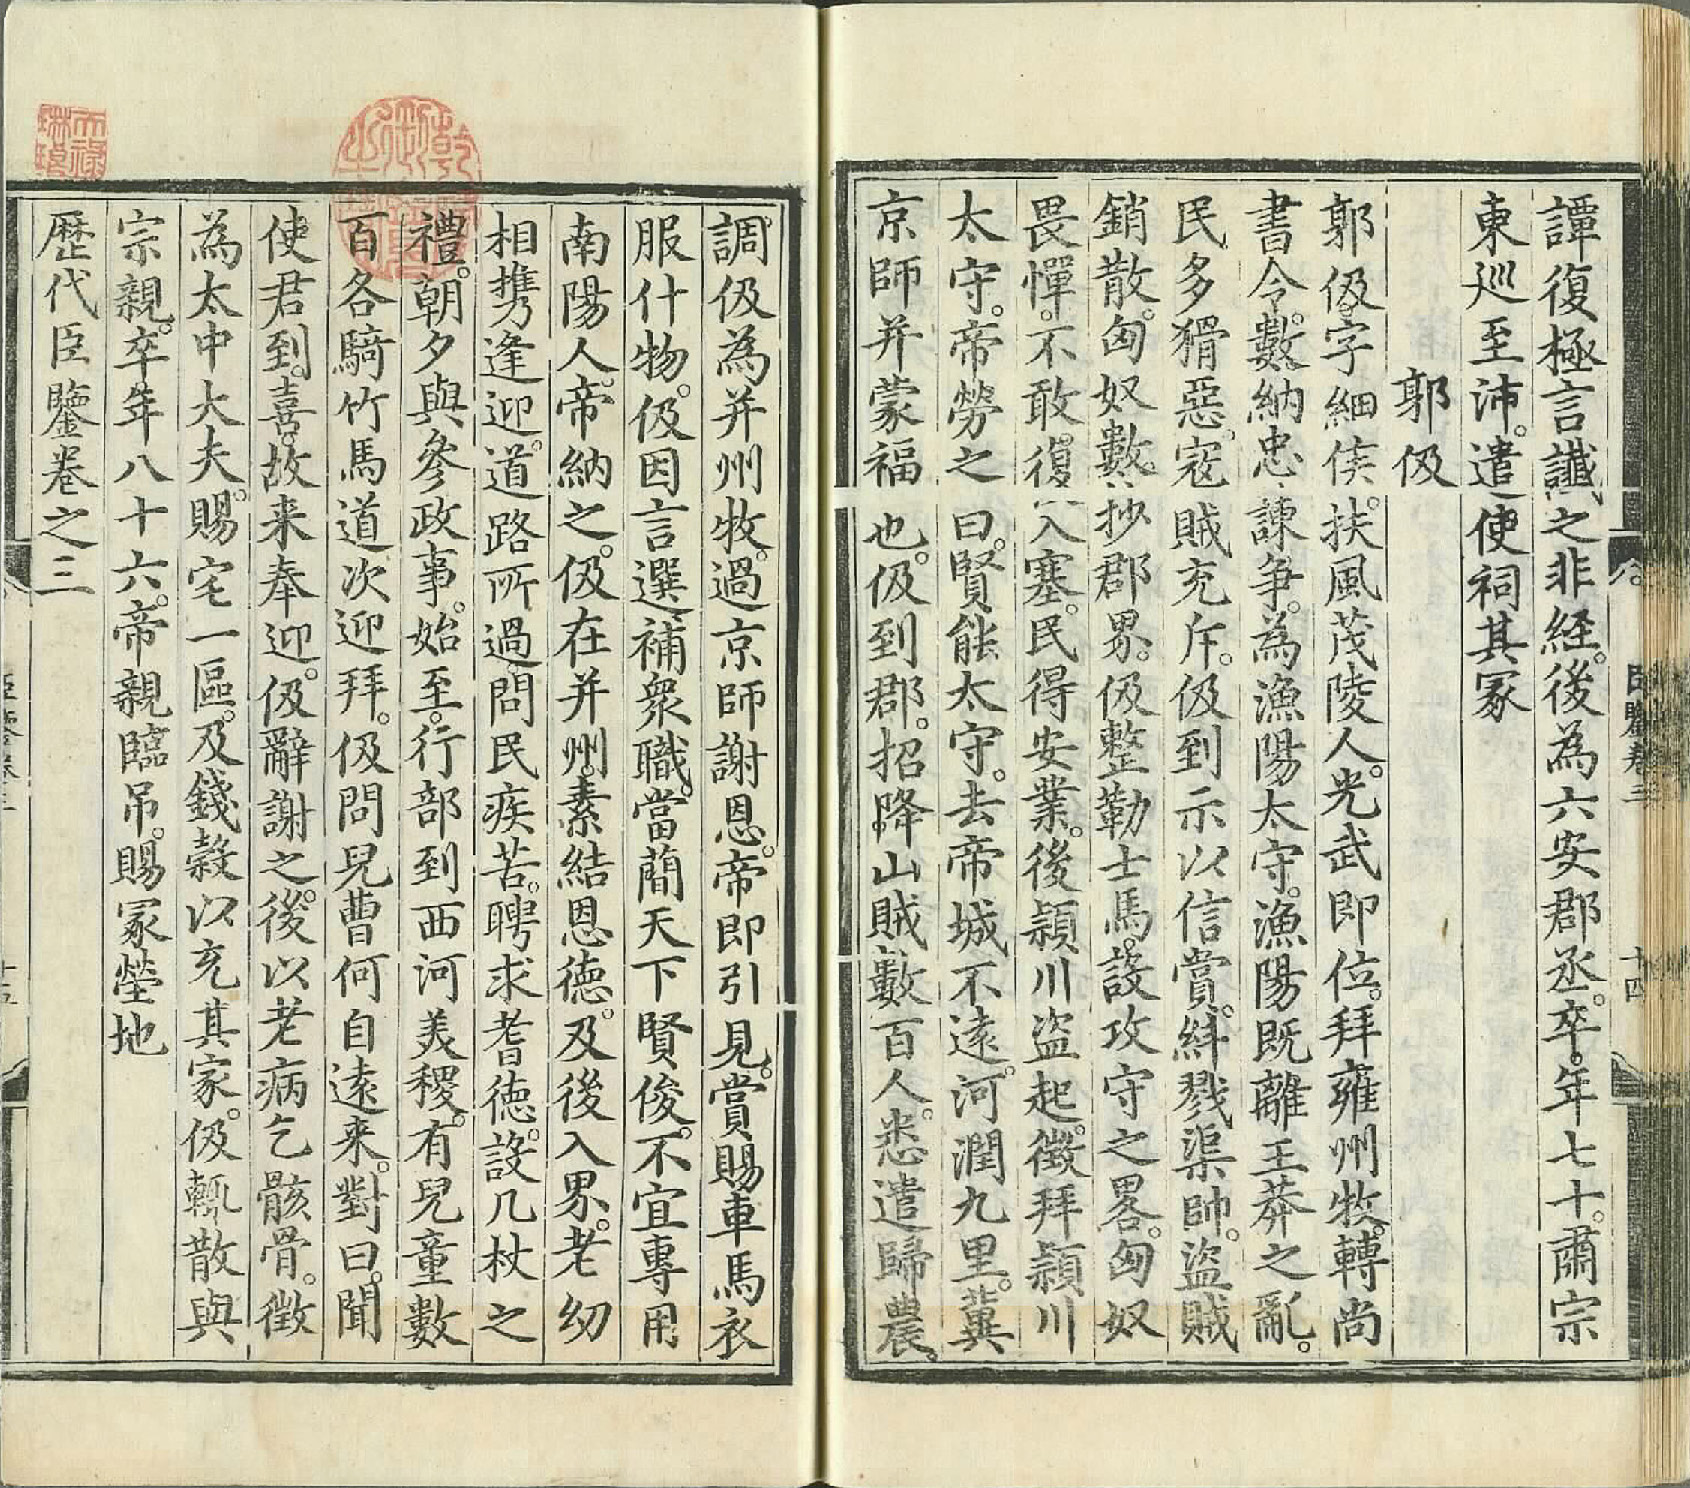 譚復極言讖之非經。後為六安郡丞。卒。年七十。肅宗
東巡至沛。遣使祠其冢
郭伋
郭伋。字細侯。扶風茂陵人。光武即位。拜雍州牧。轉尚
書令。數納忠諫争。為漁陽太守。漁陽既離王莽之亂。
民多猾惡。寇賊充斥。伋到示以信賞。糾戮渠帥。盜賊
銷散。匈奴數抄郡界。伋整勒士馬。設攻守之畧。匈奴
畏憚。不敢復入塞。民得安業。後潁川盜起。徵拜潁川
太守。帝勞之曰。賢能太守。去帝城不遠。河潤九里。冀
京師并蒙福也。伋到郡。招降山賊數百人。悉遣歸農。
調伋為并州牧。過京師謝恩。帝即引見。賞賜車馬衣
服什物。伋因言選補衆職。當蕳天下賢俊。不宜專用
南陽人。帝納之。伋在并州。素結恩德。及後入界。老幼
相携逢迎。道路所過。問民疾苦。聘求耆德。設几杖之
禮。朝夕與參政事。始至。行部到西河美稷。有兒童數
百各騎竹馬道次迎拜。伋問兒曹何自遠来。對曰。聞
使君到。喜。故来奉迎。伋辭謝之。後以老病乞骸骨。徵
為太中大夫。賜宅一區。及錢穀以充其家。伋輒散與
宗親。卒年八十六。帝親臨吊。賜冢塋地
歷代臣鑒卷之三
臣鑒卷三
十四